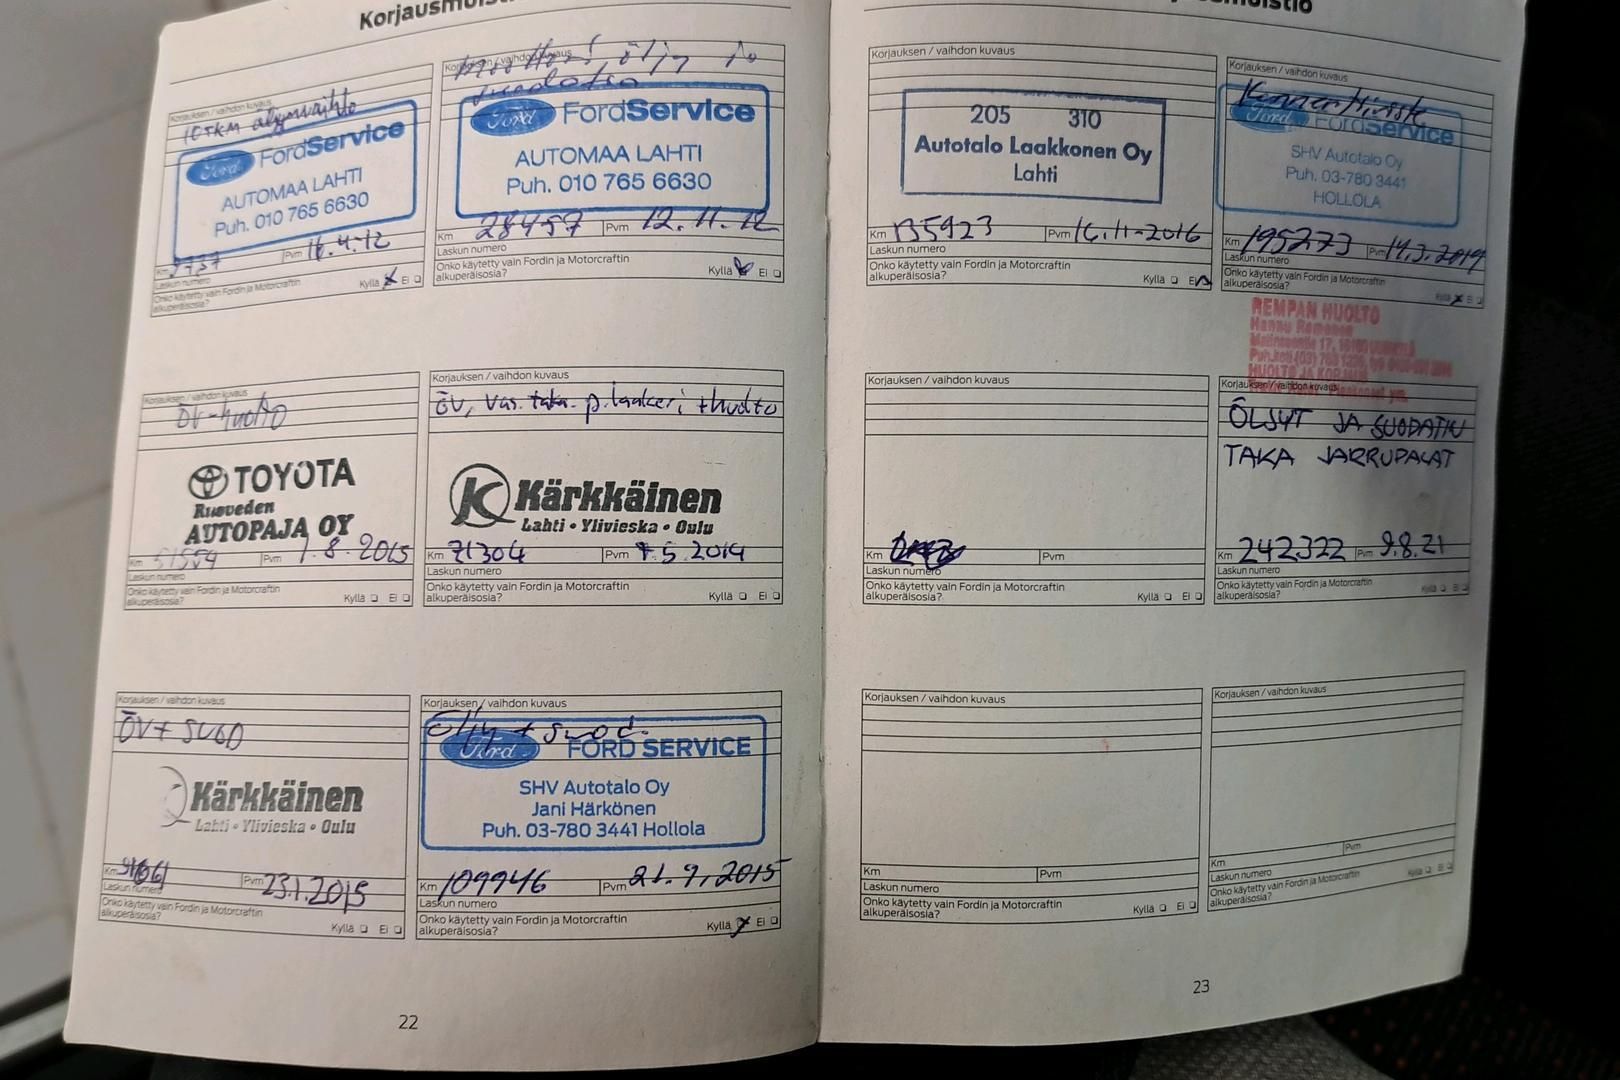 Korjausmuistio
Korjauksen / vaihdon kuvaus
10TKM öljynvaihto
Ford FordService
AUTOMAA LAHTI
Puh. 010 765 6630
Km
Pvm 16.4.12
Laskun numero
Onko käytetty vain Fordin ja Motorcraftin
alkuperäisosia?
Kyllä Ei
Korjauksen / vaihdon kuvaus
moottoriöljy ja
suodatin
Ford FordService
AUTOMAA LAHTI
Puh. 010 765 6630
Km 28457 Pvm 12.11.12
Laskun numero
Onko käytetty vain Fordin ja Motorcraftin
alkuperäisosia?
Kyllä Ei
Korjauksen / vaihdon kuvaus
ÖV-huolto
TOYOTA
Rusveden
AUTOPAJA OY
Km Pvm 1.8.2013
Laskun numero
Onko käytetty vain Fordin ja Motorcraftin
alkuperäisosia?
Kyllä Ei
Korjauksen / vaihdon kuvaus
ÖV, Vas. taka. p.laakeri + huolto
K Kärkkäinen
Lahti • Ylivieska • Oulu
Km 71304 Pvm 7.5.2014
Laskun numero
Onko käytetty vain Fordin ja Motorcraftin
alkuperäisosia?
Kyllä Ei
Korjauksen / vaihdon kuvaus
ÖV + SUOD
Kärkkäinen
Lahti • Ylivieska • Oulu
Km Pvm 23.1.2015
Laskun numero
Onko käytetty vain Fordin ja Motorcraftin
alkuperäisosia?
Kyllä Ei
Korjauksen / vaihdon kuvaus
Öljy + suod.
Ford FORD SERVICE
SHV Autotalo Oy
Jani Härkönen
Puh. 03-780 3441 Hollola
Km 109946 Pvm 21.9.2015
Laskun numero
Onko käytetty vain Fordin ja Motorcraftin
alkuperäisosia?
Kyllä Ei
22
Korjauksen / vaihdon kuvaus
205 310
Autotalo Laakkonen Oy
Lahti
Km 135923 Pvm 16.11-2016
Laskun numero
Onko käytetty vain Fordin ja Motorcraftin
alkuperäisosia?
Kyllä Ei
Korjauksen / vaihdon kuvaus
Ford FordService
SHV Autotalo Oy
Puh. 03-780 3441
HOLLOLA
Km 195273 Pvm 14.3.2019
Laskun numero
Onko käytetty vain Fordin ja Motorcraftin
alkuperäisosia?
Kyllä Ei
REMPAN HUOLTO
Hannu
HUOLTO JA KORJAUS
Korjauksen / vaihdon kuvaus
Km Pvm
Laskun numero
Onko käytetty vain Fordin ja Motorcraftin
alkuperäisosia?
Kyllä Ei
Korjauksen / vaihdon kuvaus
ÖLJYT JA SUODATIN
TAKA JARRUPALAT
Km 242322 Pvm 9.8.21
Laskun numero
Onko käytetty vain Fordin ja Motorcraftin
alkuperäisosia?
Kyllä Ei
Korjauksen / vaihdon kuvaus
Km Pvm
Laskun numero
Onko käytetty vain Fordin ja Motorcraftin
alkuperäisosia?
Kyllä Ei
Korjauksen / vaihdon kuvaus
Km Pvm
Laskun numero
Onko käytetty vain Fordin ja Motorcraftin
alkuperäisosia?
Kyllä Ei
23